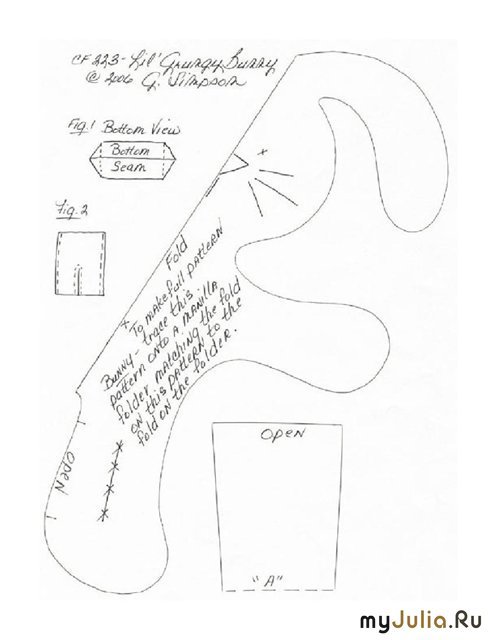 CF223- Lil' Grungy Bunny
© 2006 G. Simpson
Fig.1 Bottom View
Bottom
Seam
Fig. 2
Fold
To make full pattern
Bunny- trace this
pattern onto a manilla
folder matching the fold
on this pattern to the
fold on the folder.
OPEN
OPEN
"A"
myJulia.Ru